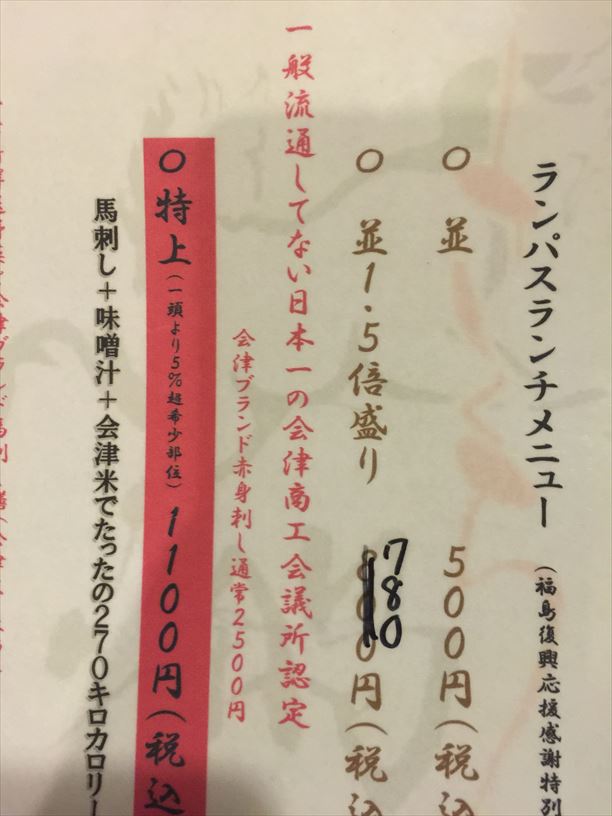 ランパスランチメニュー
（福島復興応援感謝特別
○ 並 500円（税込
○ 並1.5倍盛り 780円（税込
一般流通してない日本一の会津商工会議所認定
会津ブランド赤身刺し通常2500円
○特上（一頭より5％超希少部位）1100円（税込
馬刺し＋味噌汁＋会津米でたったの270キロカロリー